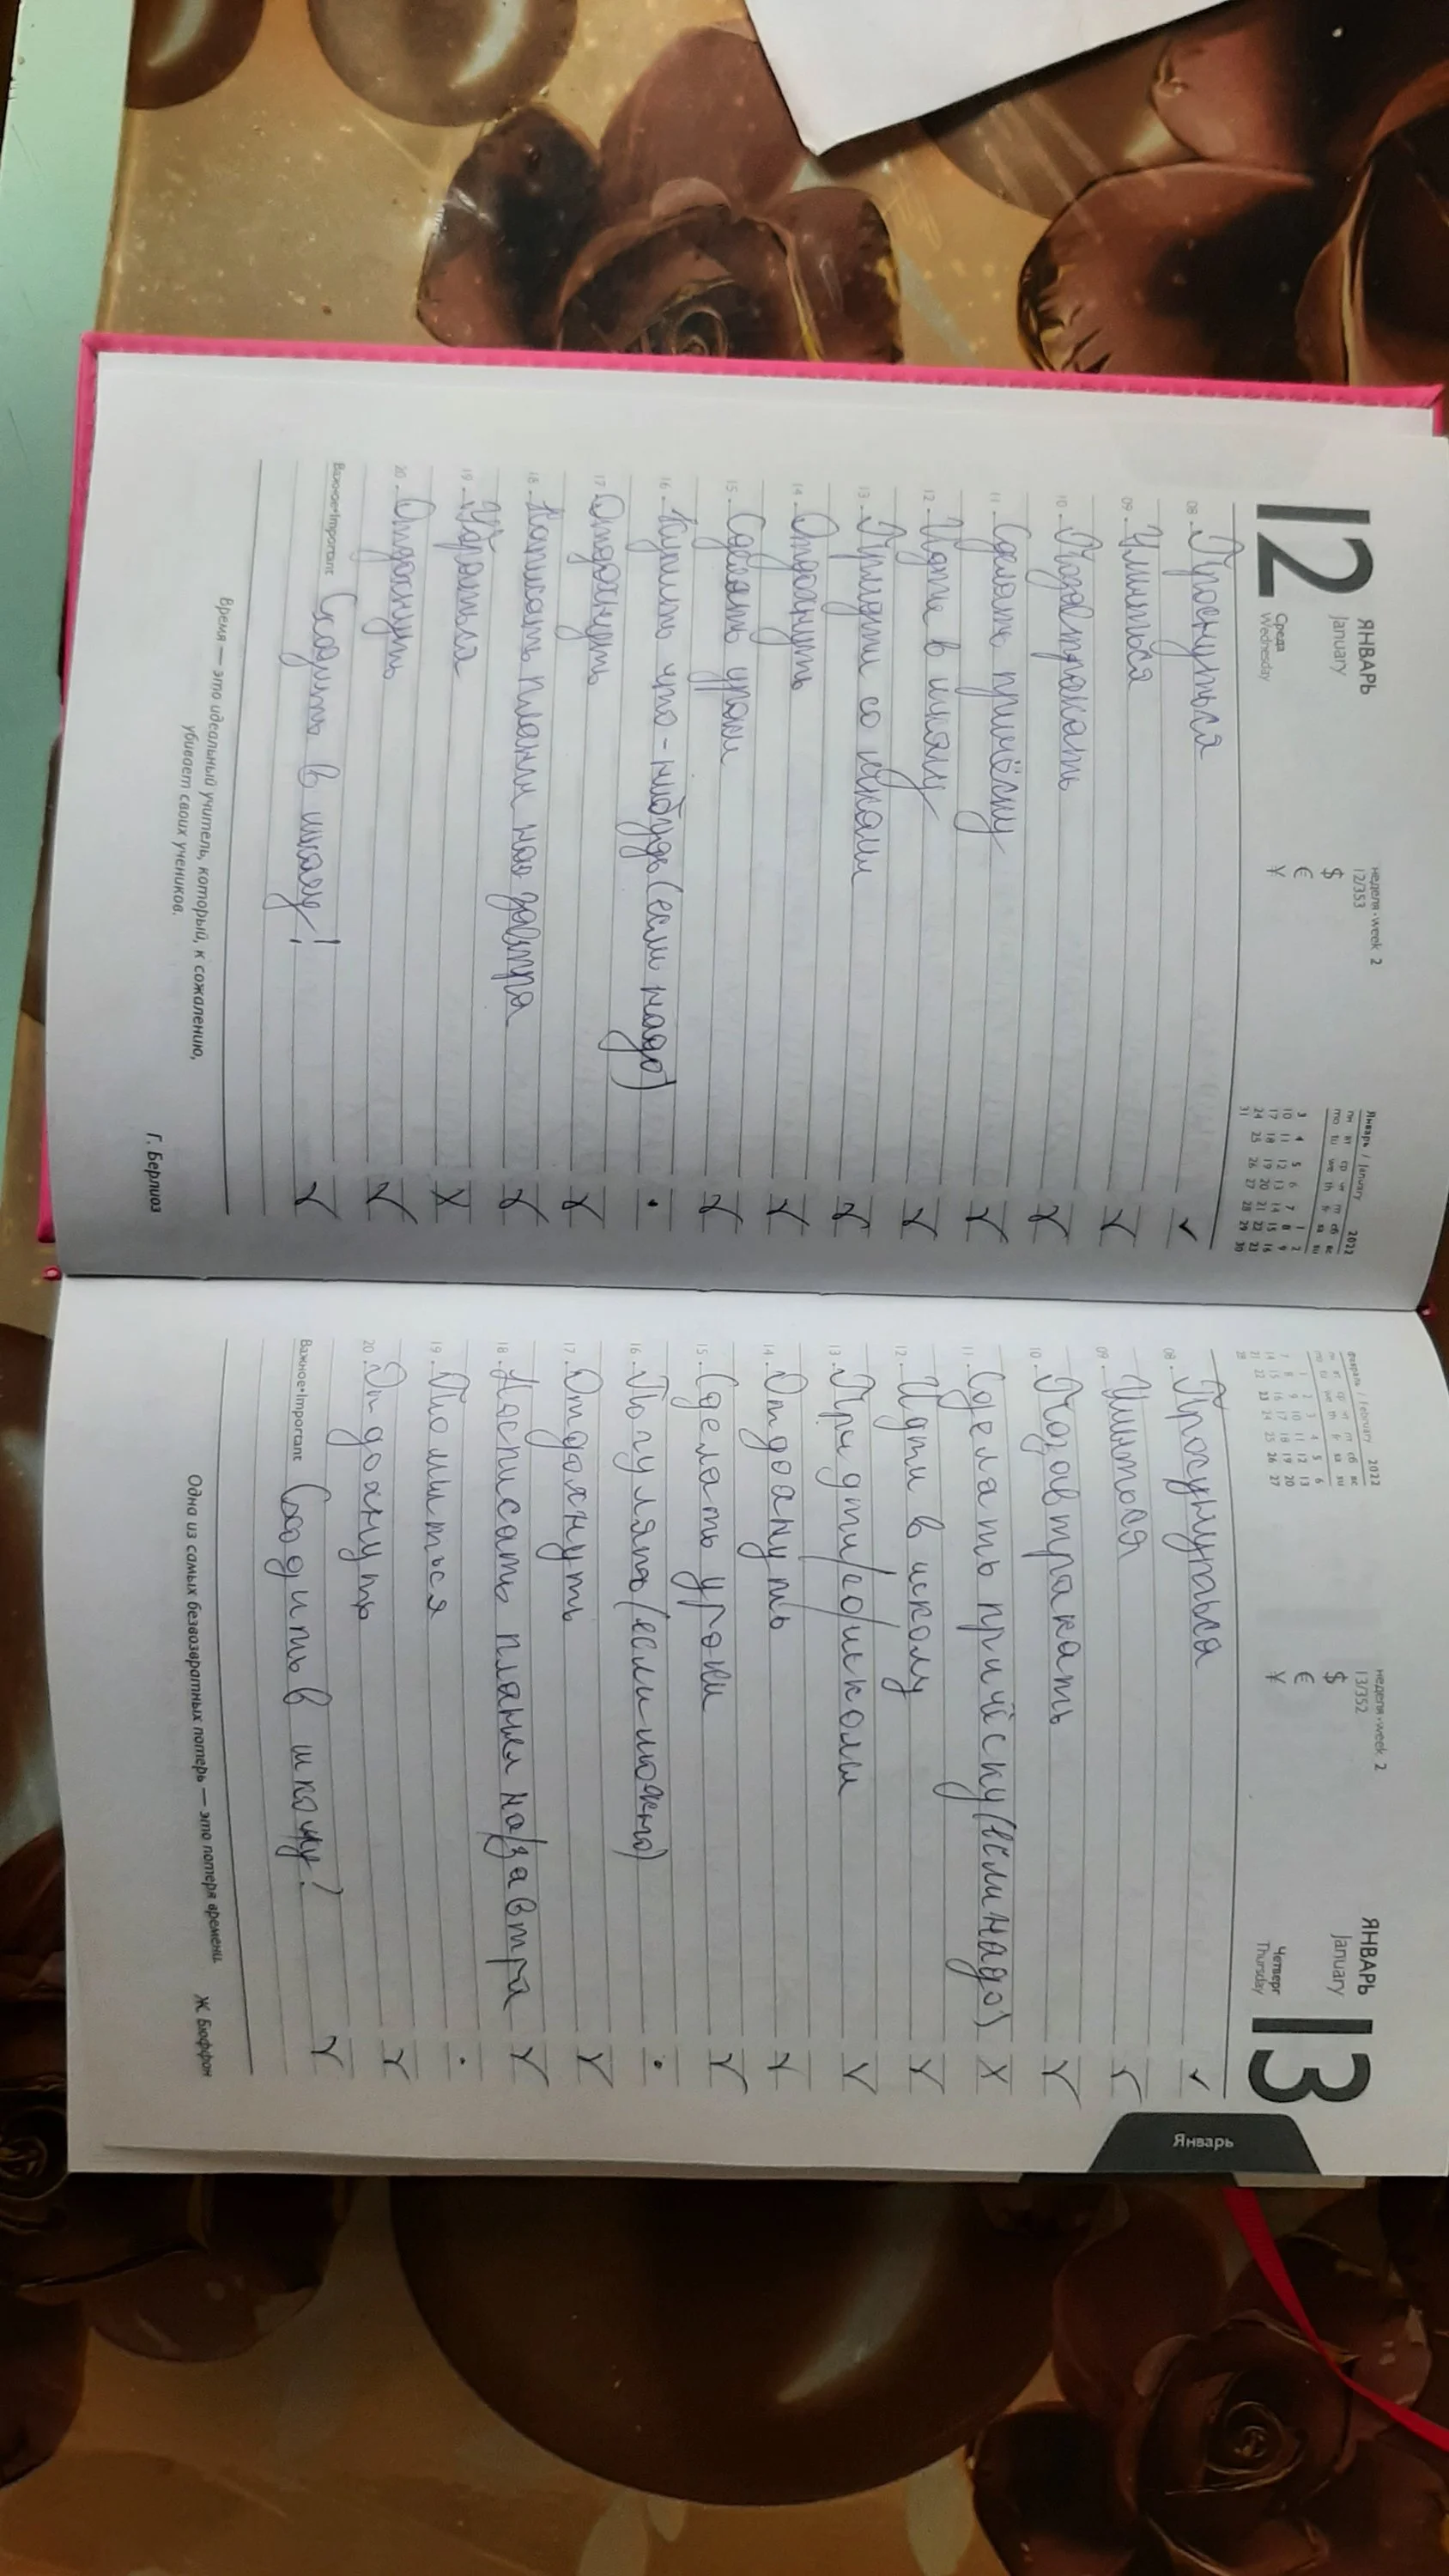 12
ЯНВАРЬ
January
Среда
Wednesday
неделя • week 2
12/353
$
€
¥
Январь / January 2022
пн вт ср чт пт сб вс
mo tu we th fr sa su
1 2
3 4 5 6 7 8 9
10 11 12 13 14 15 16
17 18 19 20 21 22 23
24 25 26 27 28 29 30
31
08 Проснуться ✓
09 Умыться ✓
10 Позавтракать ✓
11 Сделать причёску ✓
12 Идти в школу ✓
13 Придти со школы ✓
14 Отдохнуть ✓
15 Сделать уроки ✓
16 Купить что-нибудь (если надо) •
17 Отдохнуть ✓
18 Написать планы на завтра ✓
19 Убраться X
20 Отдохнуть ✓
Важное•Important Сходить в школу! ✓
Время — это идеальный учитель, который, к сожалению,
убивает своих учеников.
Г. Берлиоз
Февраль / February 2022
пн вт ср чт пт сб вс
mo tu we th fr sa su
1 2 3 4 5 6
7 8 9 10 11 12 13
14 15 16 17 18 19 20
21 22 23 24 25 26 27
28
неделя • week 2
13/352
$
€
¥
ЯНВАРЬ
January
Четверг
Thursday
13
Январь
08 Проснуться ✓
09 Умыться ✓
10 Позавтракать ✓
11 Сделать причёску (если надо) X
12 Идти в школу ✓
13 Придти/со/школы ✓
14 Отдохнуть ✓
15 Сделать уроки ✓
16 Погулять (если можно) •
17 Отдохнуть ✓
18 Написать планы на/завтра ✓
19 Помыться •
20 Отдохнуть ✓
Важное•Important Сходить в школу! ✓
Одна из самых безвозвратных потерь — это потеря времени.
Ж. Бюффон